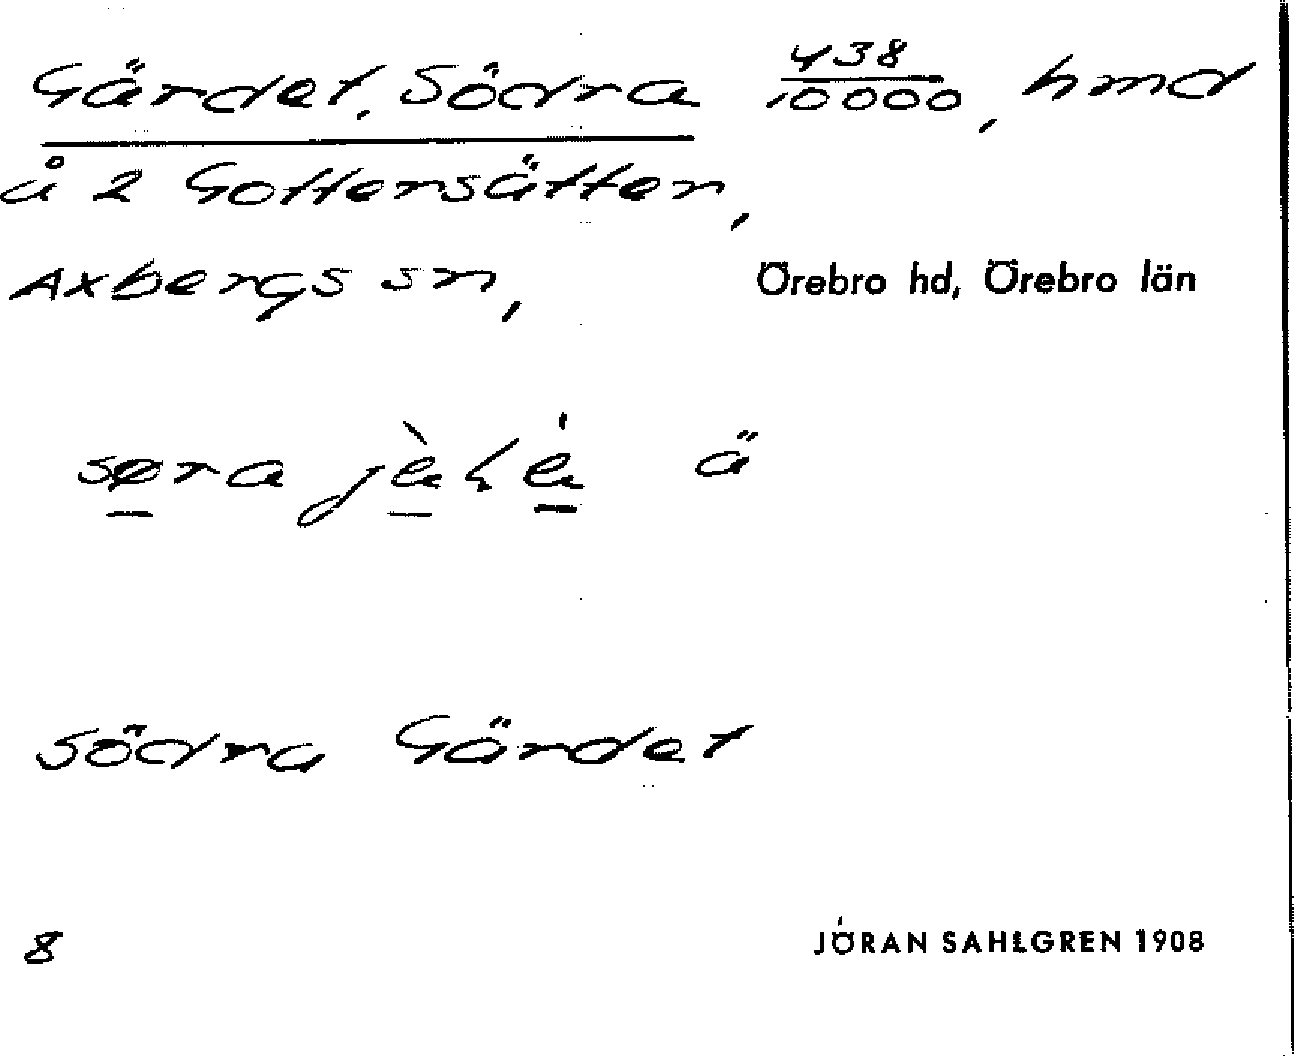 Gärdet, Södra 438/10000, hmd
å 2 Gottersätter,
Axbergs sn, Örebro hd, Örebro län
ä
Södra Gärdet
8 JÖRAN SAHLGREN 1908